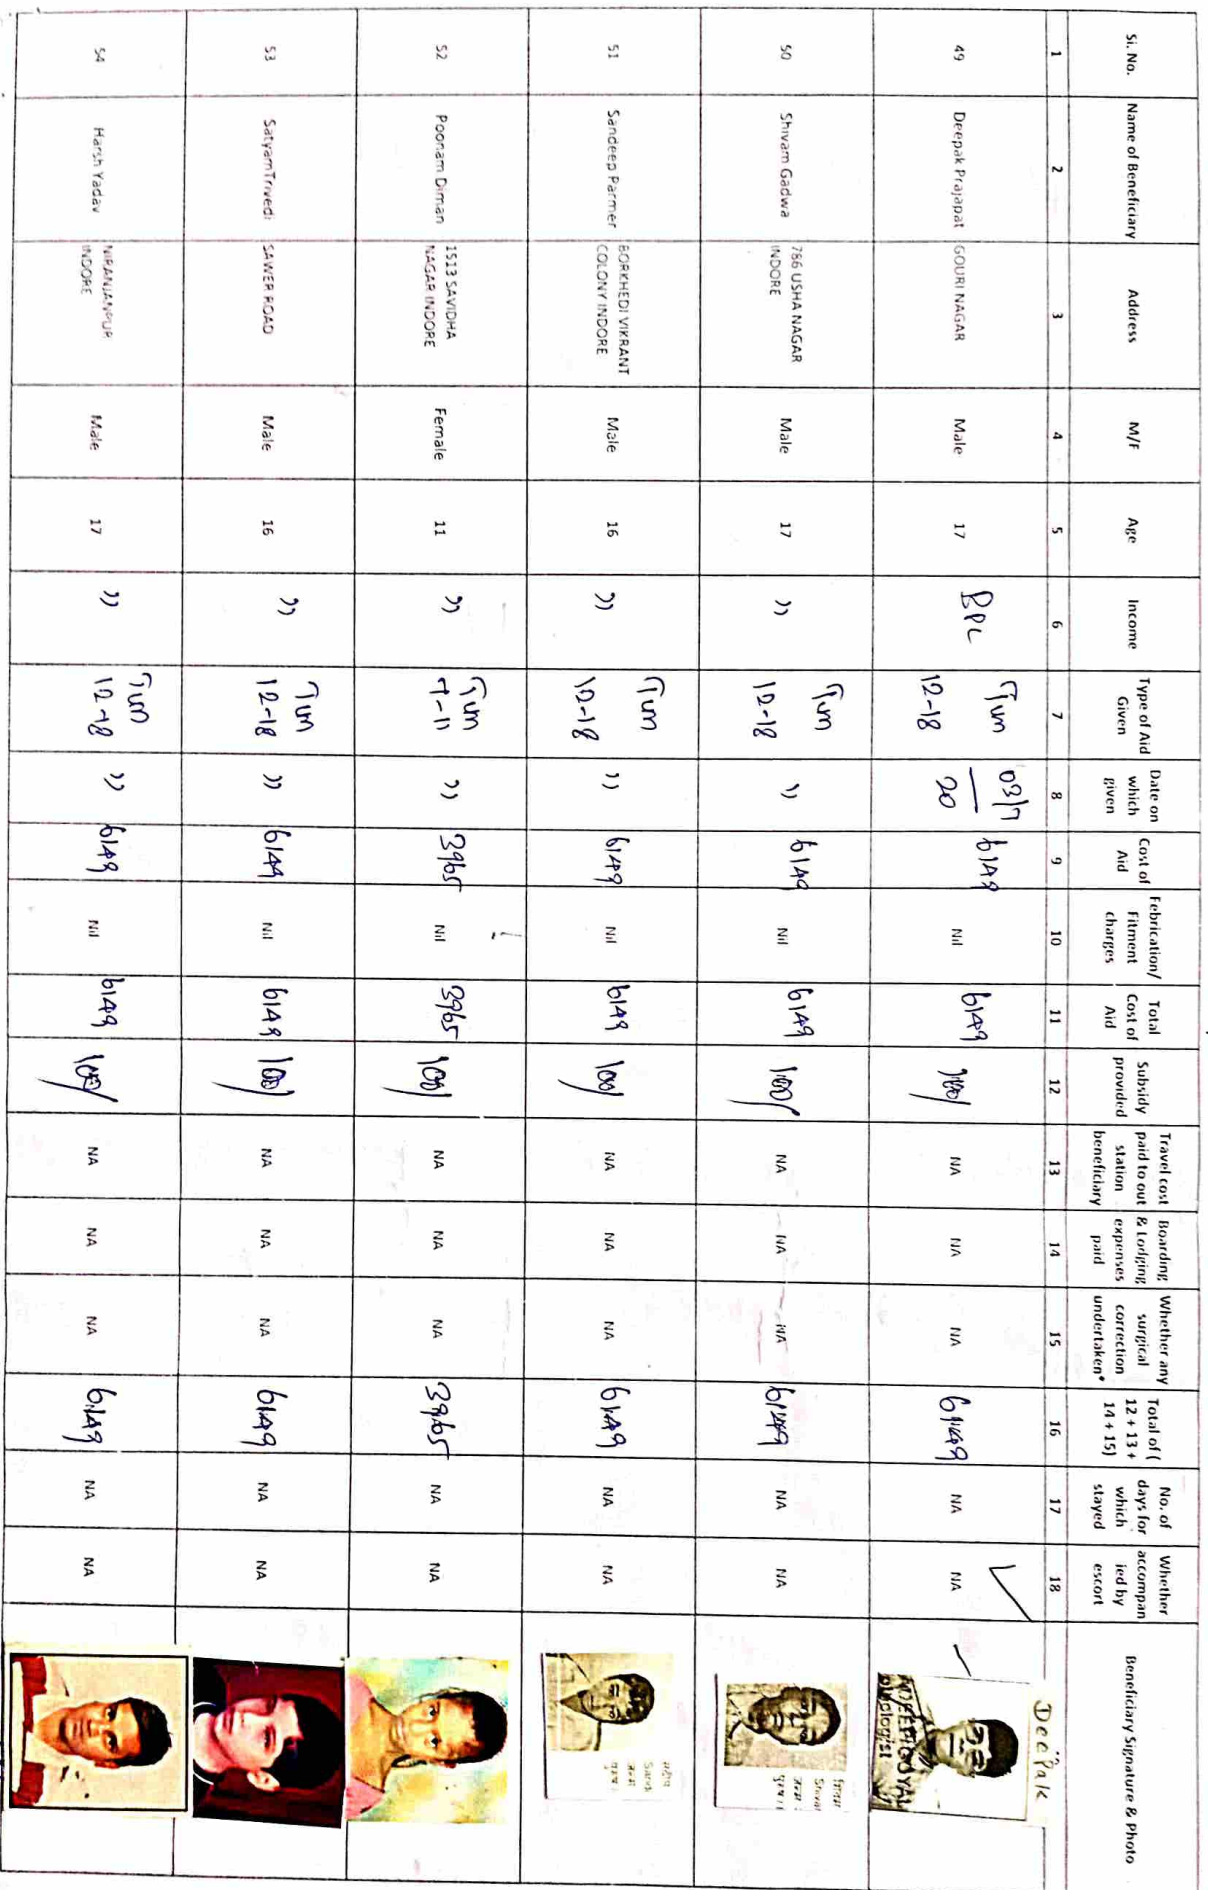 Si. No. Name of Beneficiary Address M/F Age Income Type of Aid Given Date on which given Cost of Aid Febrication/ Fitment charges Total Cost of Aid Subsidy provided Travel cost paid to out station beneficiary Boarding & Lodging expenses paid Whether any surgical correction undertaken* Total of ( 12 + 13 + 14 + 15) No. of days for which stayed Whether accompan ied by escort Beneficiary Signature & Photo
1 2 3 4 5 6 7 8 9 10 11 12 13 14 15 16 17 18
49 Deepak Prajapat GOURI NAGAR Male 17 BPL Tlm 12-18 03/7 20 6149 Nil 6149 100/ NA NA NA 6149 NA NA Deepak
50 Shivam Gadwa 786 USHA NAGAR INDORE Male 17 " Tlm 12-18 " 6149 Nil 6149 100/ NA NA NA 6149 NA NA
51 Sandeep Parmer BORKHEDI VIKRANT COLONY INDORE Male 16 " Tlm 12-18 " 6149 Nil 6149 100/ NA NA NA 6149 NA NA
52 Poonam Diman 1513 SAVIDHA NAGAR INDORE Female 11 " Tlm 7-11 " 3965 Nil 3965 100/ NA NA NA 3965 NA NA
53 SatyamTrivedi SAWER ROAD Male 16 " Tlm 12-18 " 6149 Nil 6149 100/ NA NA NA 6149 NA NA
54 Harsh Yadav NIRANJANPUR INDORE Male 17 " Tlm 12-18 " 6149 Nil 6149 100/ NA NA NA 6149 NA NA